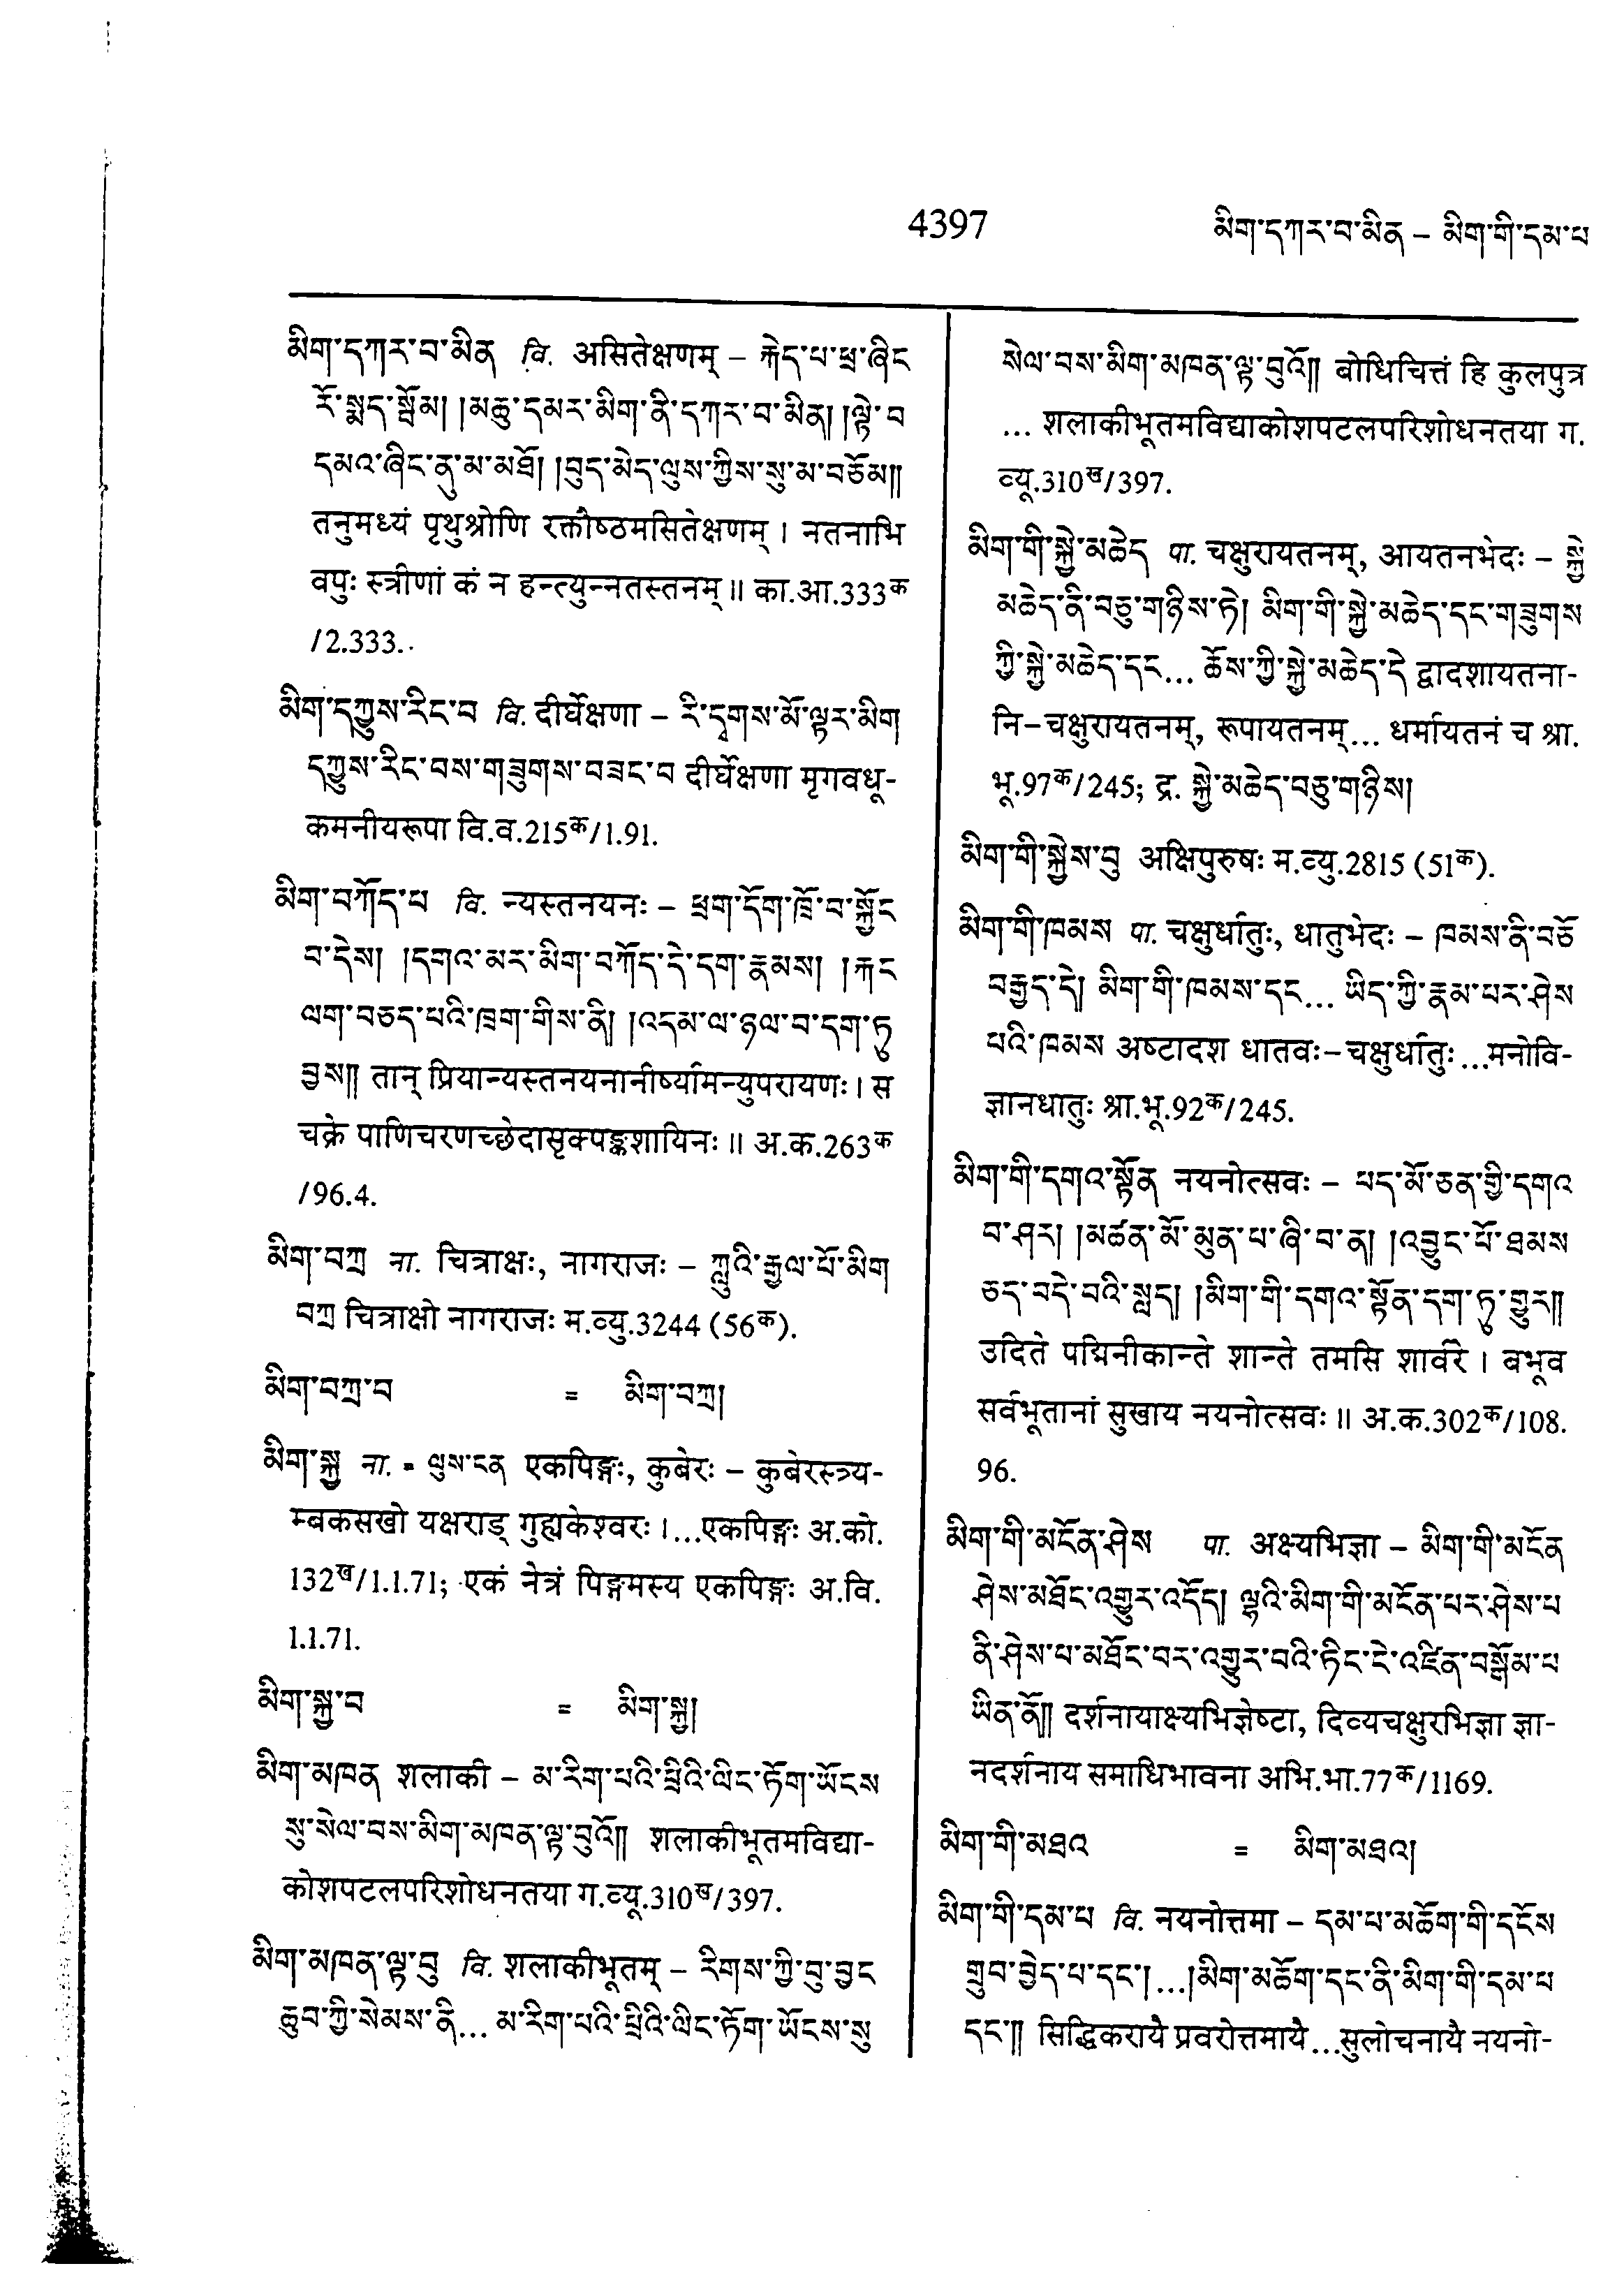 4397
མིག་དཀར་བ་མིན – མིག་གི་དམ་པ
མིག་དཀར་བ་མིན वि. असितेक्षणम् – རྐེད་པ་ཕྲ་ཞིང
རོ་སྨད་སྦོམ། །མཆུ་དམར་མིག་ནི་དཀར་བ་མིན། །ལྟེ་བ
དམའ་ཞིང་ནུ་མ་མཐོ། །བུད་མེད་ལུས་ཀྱིས་སུ་མ་བཅོམ༎
तनुमध्यं पृथुश्रोणि रक्तौष्ठमसितेक्षणम् । नतनाभि
वपुः स्त्रीणां कं न हन्त्युन्नतस्तनम् ॥ का.आ.333क
/2.333.
མིག་དཀྱུས་རིང་བ वि. दीर्घेक्षणा – རི་དྭགས་མོ་ལྟར་མིག
དཀྱུས་རིང་བས་གཟུགས་བཟང་བ दीर्घेक्षणा मृगवधू-
कमनीयरूपा वि.व.215क/1.91.
མིག་བཀོད་པ वि. न्यस्तनयनः – ཕྲག་དོག་ཁྲོ་བ་སྐྱོང
བ་དེས། །དགའ་མར་མིག་བཀོད་དེ་དག་རྣམས། །རྐང
ལག་བཅད་པའི་ཁྲག་གིས་ནི། །འདམ་ལ་ཉལ་བ་དག་ཏུ
བྱས༎ तान् प्रियान्यस्तनयनानीर्ष्यामन्युपरायणः । स
चक्रे पाणिचरणच्छेदासृक्पङ्कशायिनः ॥ अ.क.263क
/96.4.
མིག་བཀྲ ना. चित्राक्षः, नागराजः – ཀླུའི་རྒྱལ་པོ་མིག
བཀྲ चित्राक्षो नागराजः म.व्यु.3244 (56क).
མིག་བཀྲ་བ = མིག་བཀྲ།
མིག་སྐྱ ना. = ལུས་ངན एकपिङ्गः, कुबेरः – कुबेरस्त्र्य-
म्बकसखो यक्षराड् गुह्यकेश्वरः ।…एकपिङ्गः अ.को.
132ख/1.1.71; एकं नेत्रं पिङ्गमस्य एकपिङ्गः अ.वि.
1.1.71.
མིག་སྐྱ་བ = མིག་སྐྱ།
མིག་མཁན शलाकी – མ་རིག་པའི་སྤྲིའི་ལིང་ཏོག་ཡོངས
སུ་སེལ་བས་མིག་མཁན་ལྟ་བུའོ༎ शलाकीभूतमविद्या-
कोशपटलपरिशोधनतया ग.व्यू.310ख/397.
མིག་མཁན་ལྟ་བུ वि. शलाकीभूतम् – རིགས་ཀྱི་བུ་བྱང
ཆུབ་ཀྱི་སེམས་ནི… མ་རིག་པའི་སྤྲིའི་ལིང་ཏོག་ཡོངས་སུ
སེལ་བས་མིག་མཁན་ལྟ་བུའོ༎ बोधिचित्तं हि कुलपुत्र
… शलाकीभूतमविद्याकोशपटलपरिशोधनतया ग.
व्यू.310ख/397.
མིག་གི་སྐྱེ་མཆེད पा. चक्षुरायतनम्, आयतनभेदः – སྐྱེ
མཆེད་ནི་བཅུ་གཉིས་ཏེ། མིག་གི་སྐྱེ་མཆེད་དང་གཟུགས
ཀྱི་སྐྱེ་མཆེད་དང… ཆོས་ཀྱི་སྐྱེ་མཆེད་དེ द्वादशायतना-
नि–चक्षुरायतनम्, रूपायतनम्… धर्मायतनं च श्रा.
भू.97क/245; द्र. སྐྱེ་མཆེད་བཅུ་གཉིས།
མིག་གི་སྐྱེས་བུ अक्षिपुरुषः म.व्यु.2815 (51क).
མིག་གི་ཁམས पा. चक्षुर्धातुः, धातुभेदः – ཁམས་ནི་བཅོ
བརྒྱད་དེ། མིག་གི་ཁམས་དང… ཡིད་ཀྱི་རྣམ་པར་ཤེས
པའི་ཁམས अष्टादश धातवः–चक्षुर्धातुः…मनोवि-
ज्ञानधातुः श्रा.भू.92क/245.
མིག་གི་དགའ་སྟོན नयनोत्सवः – པད་མོ་ཅན་གྱི་དགའ
བ་ཤར། །མཚན་མོ་མུན་པ་ཞི་བ་ན། །འབྱུང་པོ་ཐམས
ཅད་བདེ་བའི་སླད། །མིག་གི་དགའ་སྟོན་དག་ཏུ་གྱུར༎
उदिते पद्मिनीकान्ते शान्ते तमसि शार्वरे । बभूव
सर्वभूतानां सुखाय नयनोत्सवः ॥ अ.क.302क/108.
96.
མིག་གི་མངོན་ཤེས पा. अक्ष्यभिज्ञा – མིག་གི་མངོན
ཤེས་མཐོང་འགྱུར་འདོད། ལྷའི་མིག་གི་མངོན་པར་ཤེས་པ
ནི་ཤེས་པ་མཐོང་བར་འགྱུར་བའི་ཏིང་ངེ་འཛིན་བསྒོམ་པ
ཡིན་ནོ༎ दर्शनायाक्ष्यभिज्ञेष्टा, दिव्यचक्षुरभिज्ञा ज्ञा-
नदर्शनाय समाधिभावना अभि.भा.77क/1169.
མིག་གི་མཐའ = མིག་མཐའ།
མིག་གི་དམ་པ वि. नयनोत्तमा – དམ་པ་མཆོག་གི་དངོས
གྲུབ་བྱེད་པ་དང་།…།མིག་མཆོག་དང་ནི་མིག་གི་དམ་པ
དང་༎ सिद्धिकरायै प्रवरोत्तमायै…सुलोचनायै नयनो-